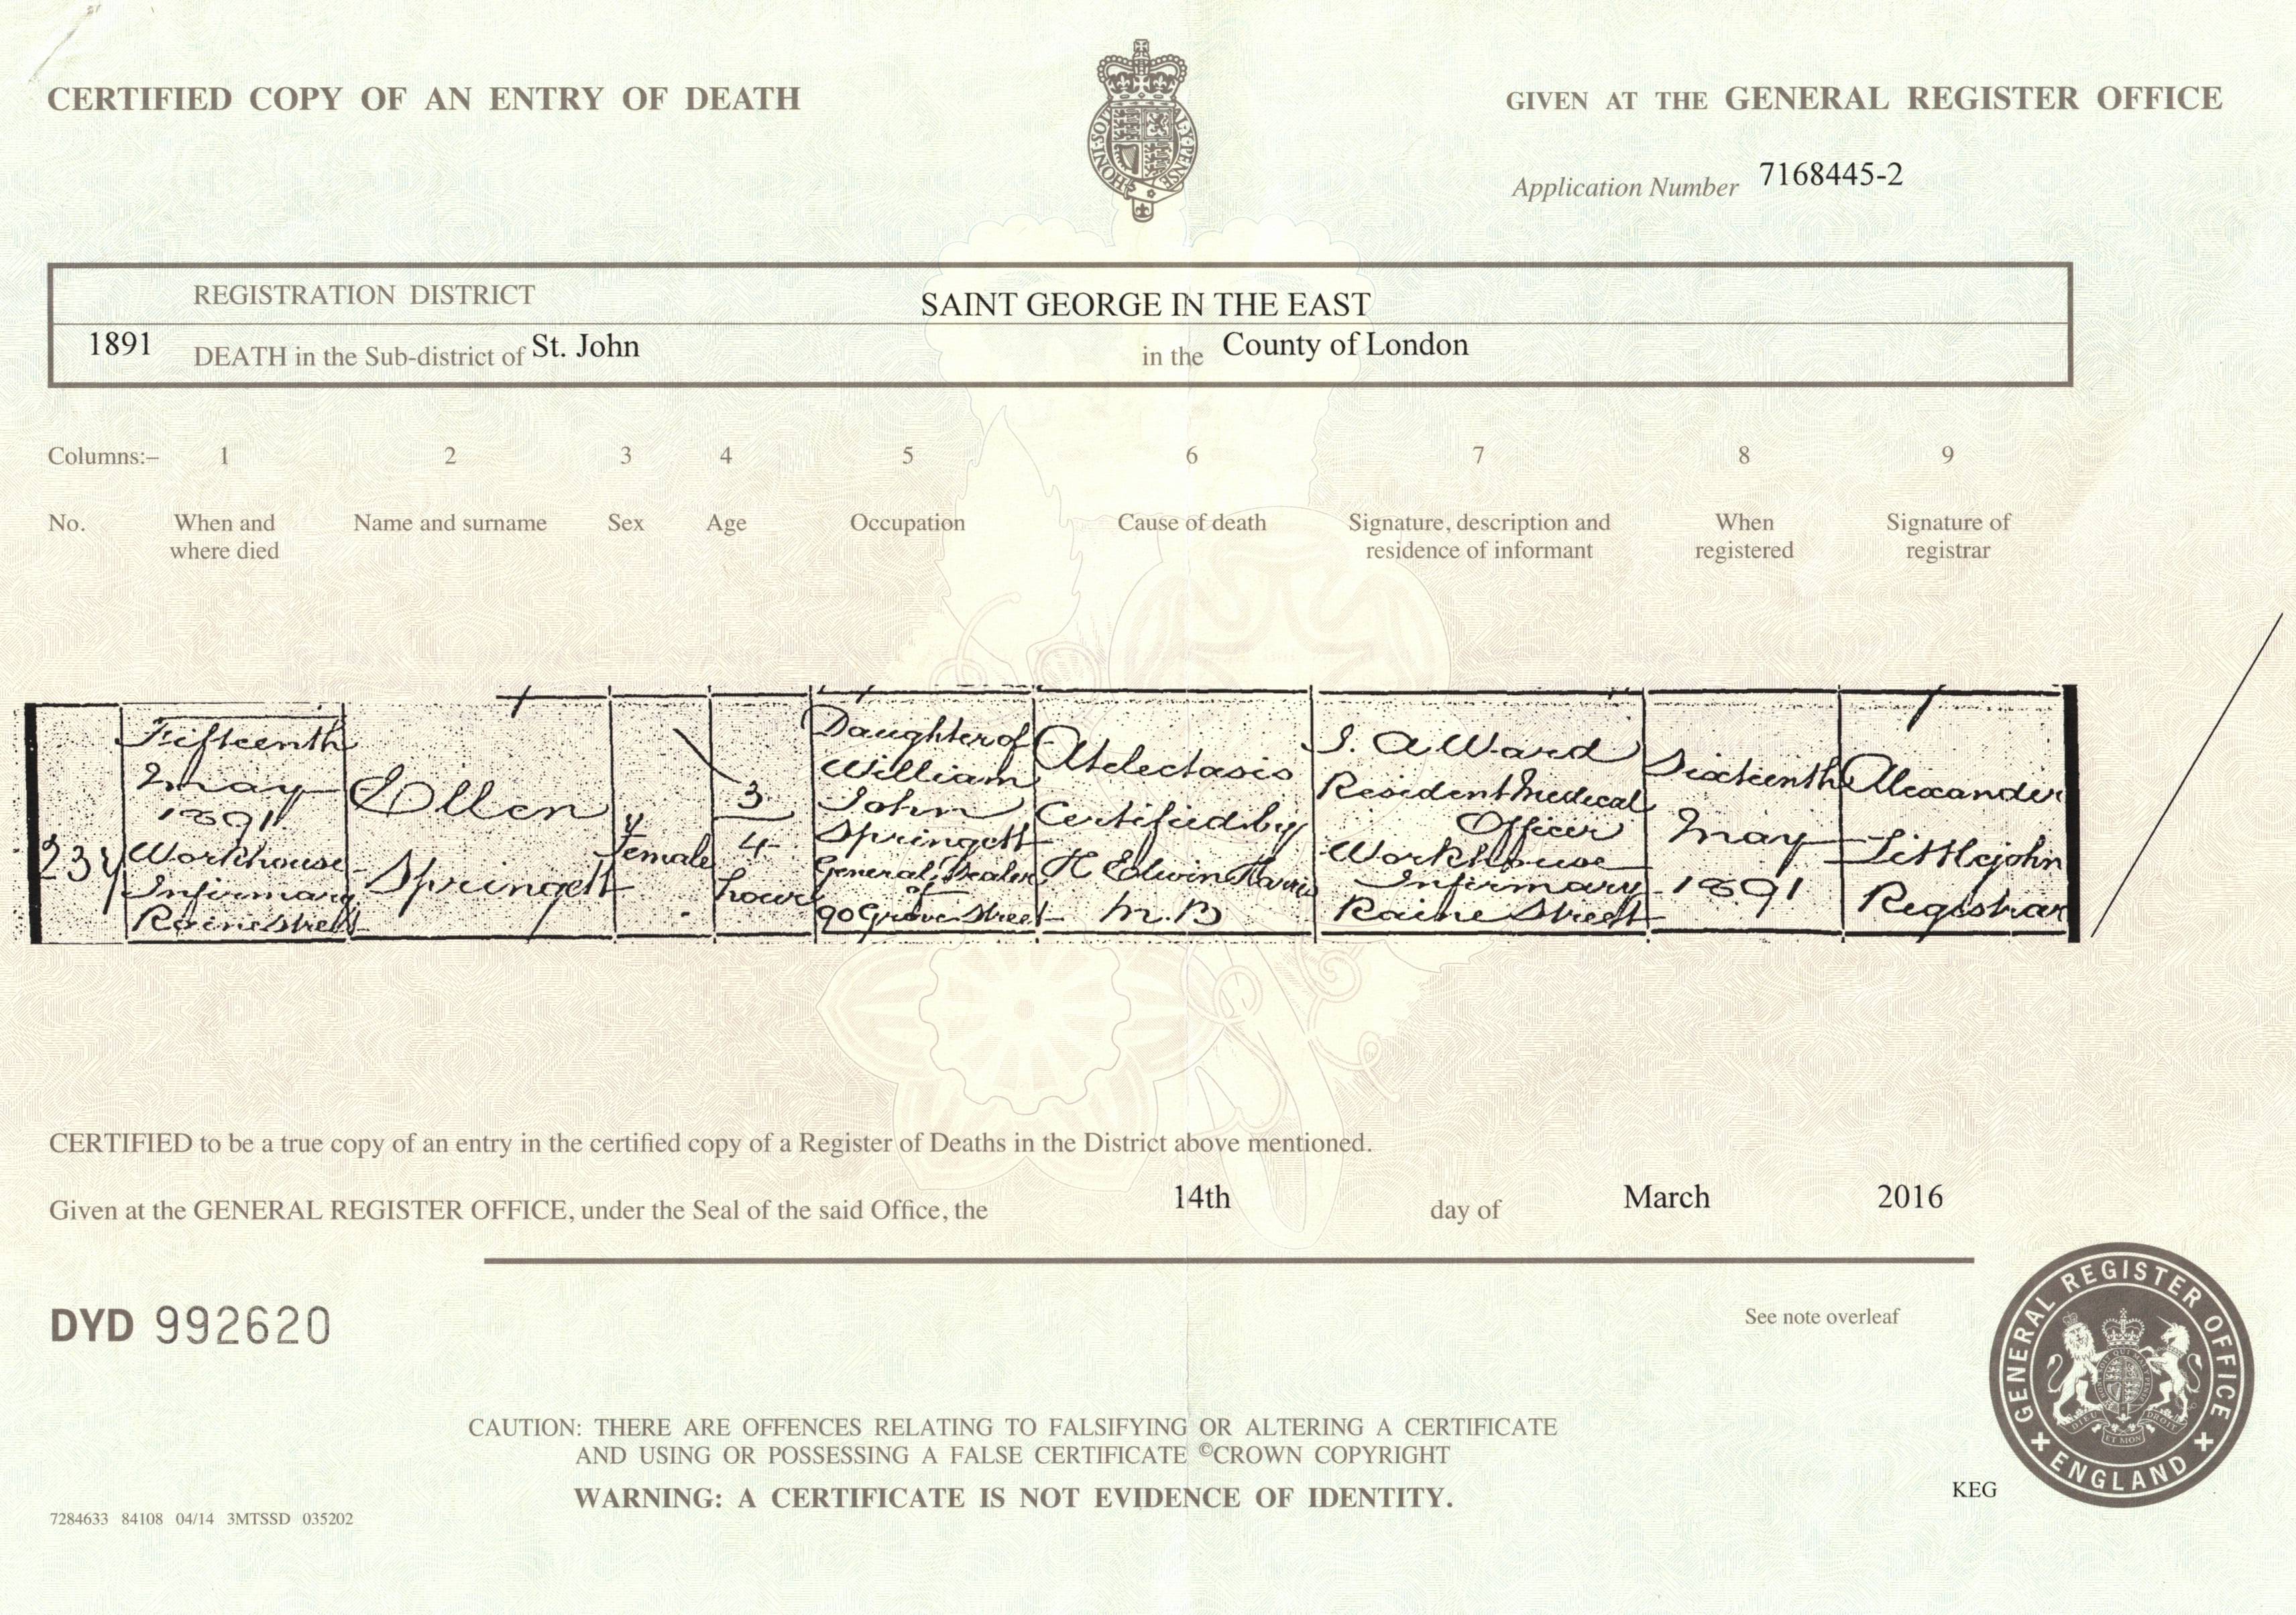 CERTIFIED COPY OF AN ENTRY OF DEATH
GIVEN AT THE GENERAL REGISTER OFFICE
Application Number 7168445-2
REGISTRATION DISTRICT SAINT GEORGE IN THE EAST
1891 DEATH in the Sub-district of St. John in the County of London
Columns:– 1 2 3 4 5 6 7 8 9
No. When and where died Name and surname Sex Age Occupation Cause of death Signature, description and residence of informant When registered Signature of registrar
Fifteenth
May
1891
Workhouse
Infirmary
Raine Street
Ellen
Springett
Female
3
4
hours
Daughter of
William
John
Springett
General Dealer
of
90 Grove Street
Atelectasis
Certified by
H Edwin Harris
M.B
J. A Ward
Resident Medical
Officer
Workhouse
Infirmary
Raine Street
Sixteenth
May
1891
Alexander
Littlejohn
Registrar
CERTIFIED to be a true copy of an entry in the certified copy of a Register of Deaths in the District above mentioned.
Given at the GENERAL REGISTER OFFICE, under the Seal of the said Office, the 14th day of March 2016
DYD 992620
See note overleaf
GENERAL REGISTER OFFICE
ENGLAND
CAUTION: THERE ARE OFFENCES RELATING TO FALSIFYING OR ALTERING A CERTIFICATE
AND USING OR POSSESSING A FALSE CERTIFICATE ©CROWN COPYRIGHT
WARNING: A CERTIFICATE IS NOT EVIDENCE OF IDENTITY.
KEG
7284633 84108 04/14 3MTSSD 035202